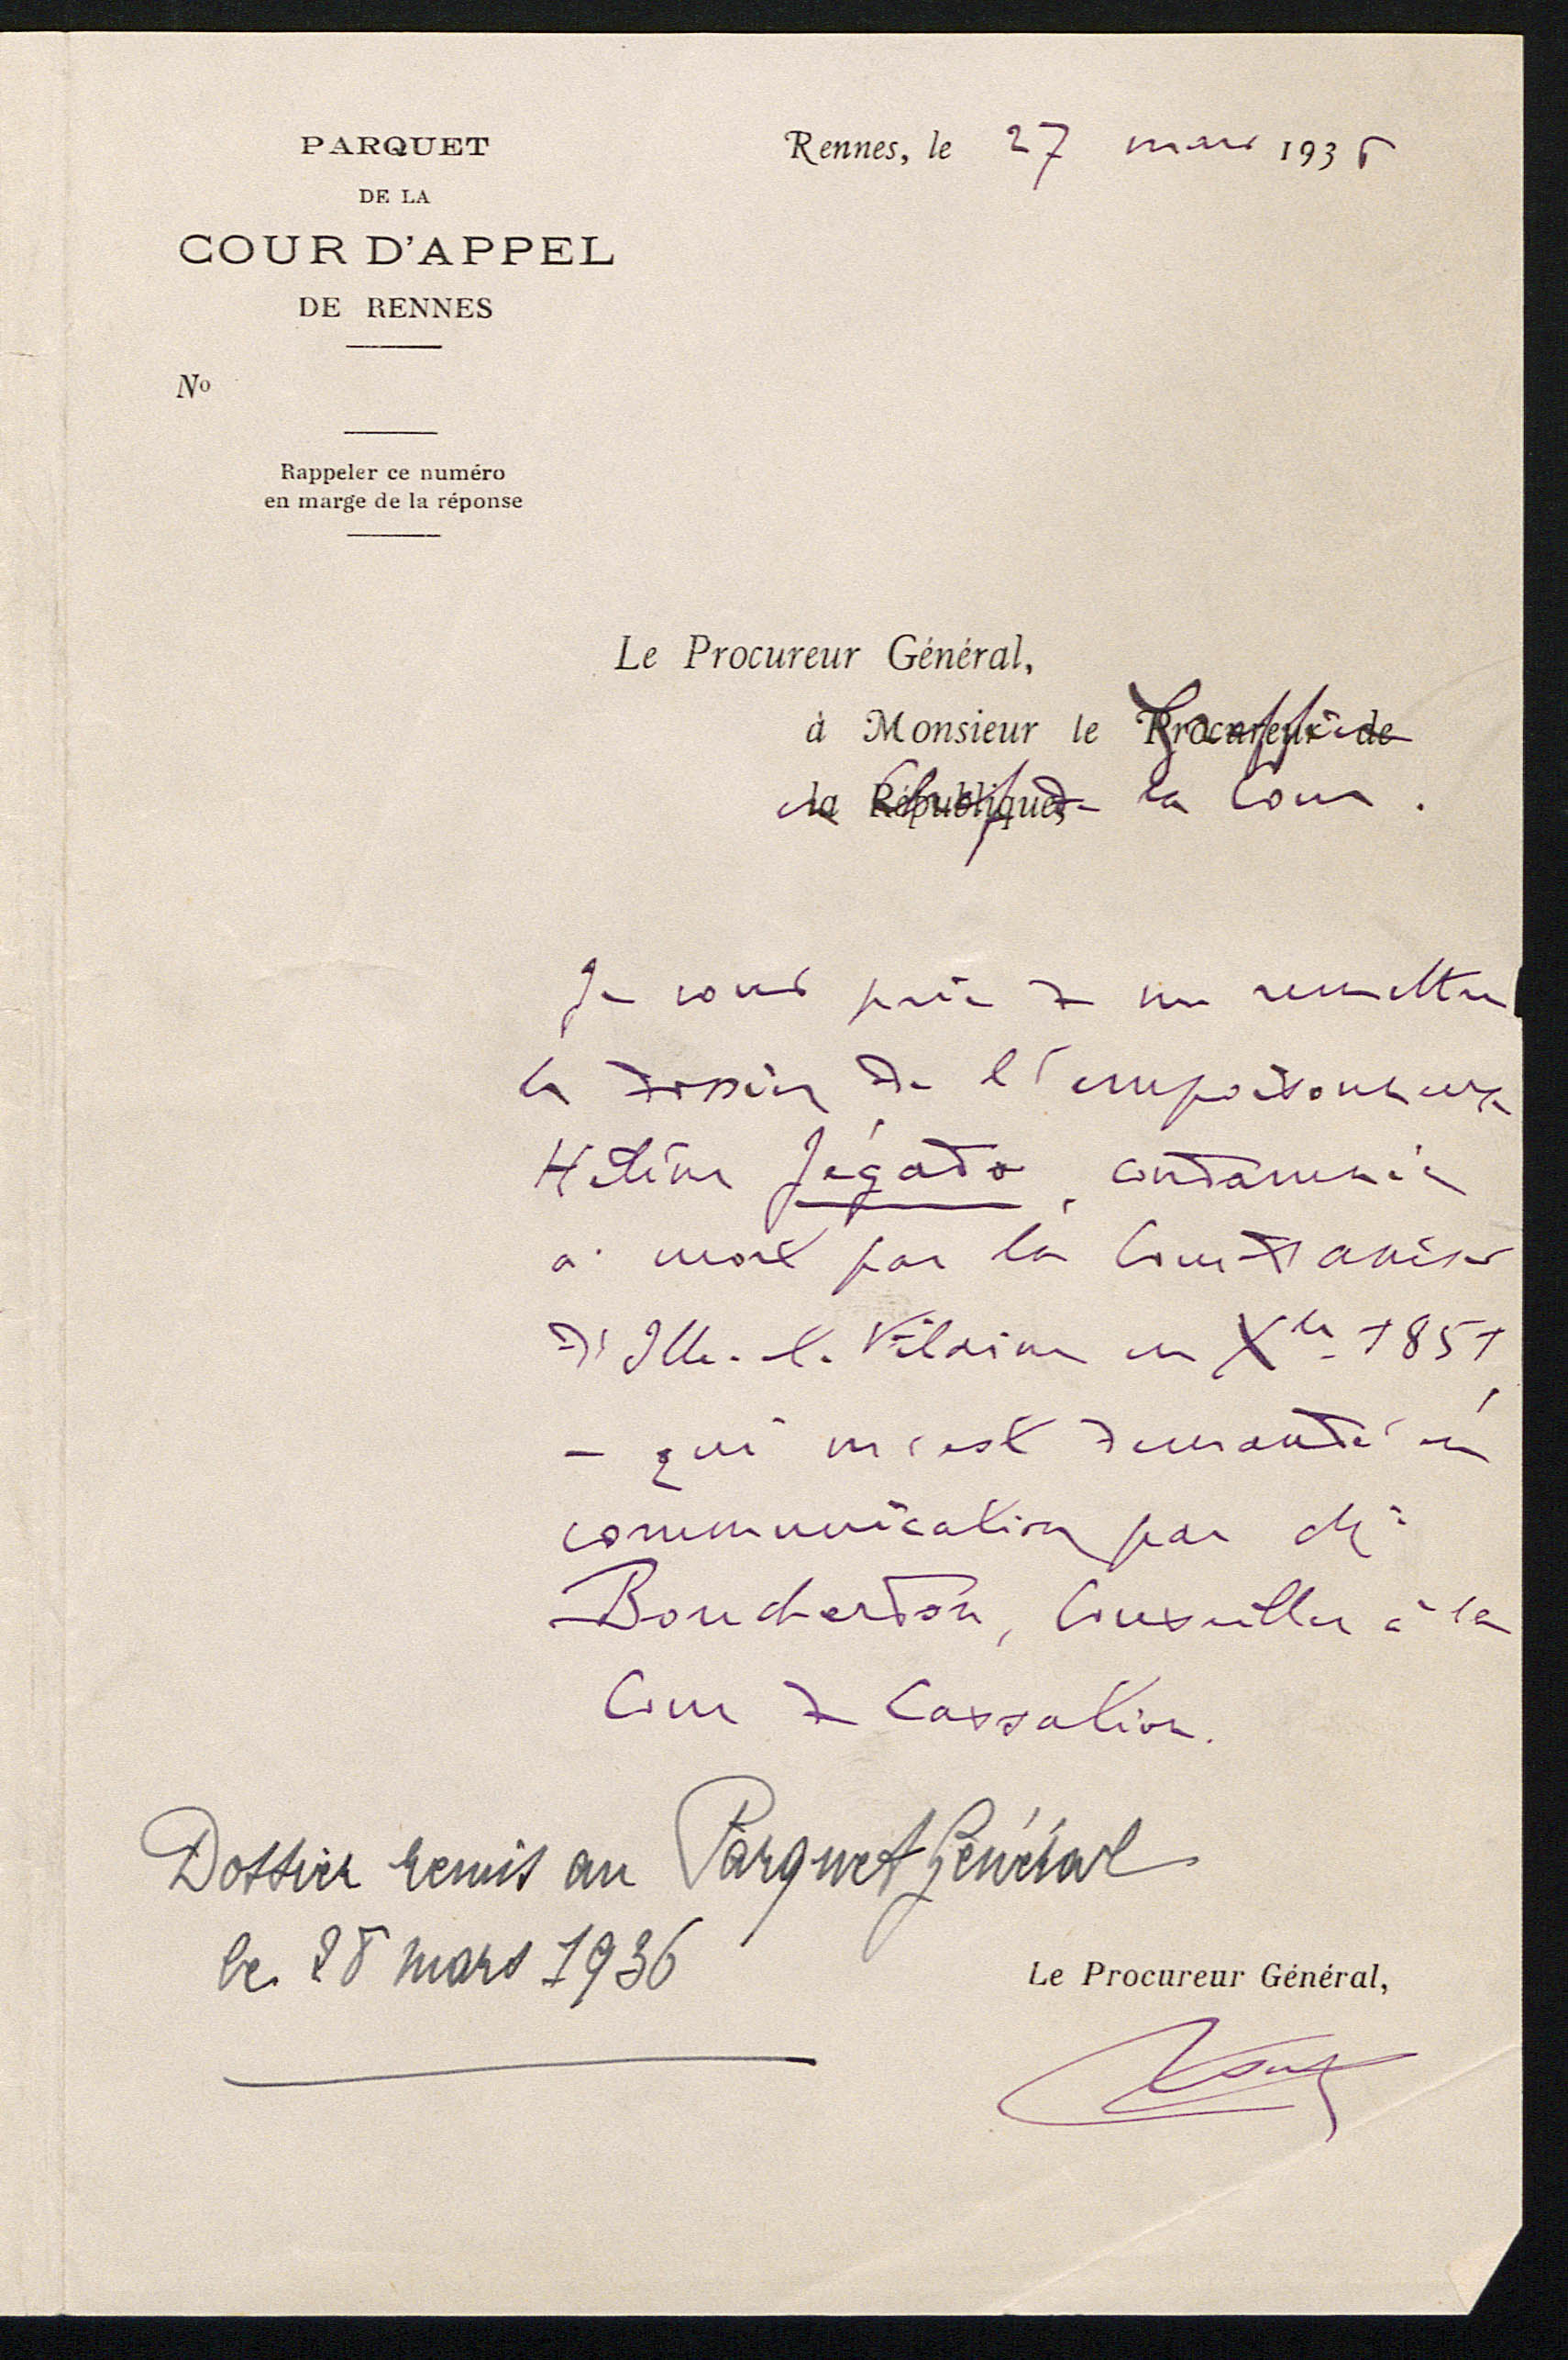 PARQUET
DE LA
COUR D'APPEL
DE RENNES
No
Rappeler ce numéro
en marge de la réponse
Rennes, le 27 mars 1936
Le Procureur Général,
à Monsieur le Procureur de Greffier
la République, en Chef de la Cour.
Je vous prie de me remettre
le dossier de l'empoisonneuse
Hélène Jégado, condamnée
à mort par la Cour d'assises
d'Ille-et-Vilaine en Xbre 1851,
- qui m'est demandé en
communication par Mr
Bouchardon, Conseiller à la
Cour de Cassation.
Dossier remis au Parquet Général
le 28 mars 1936
Le Procureur Général,